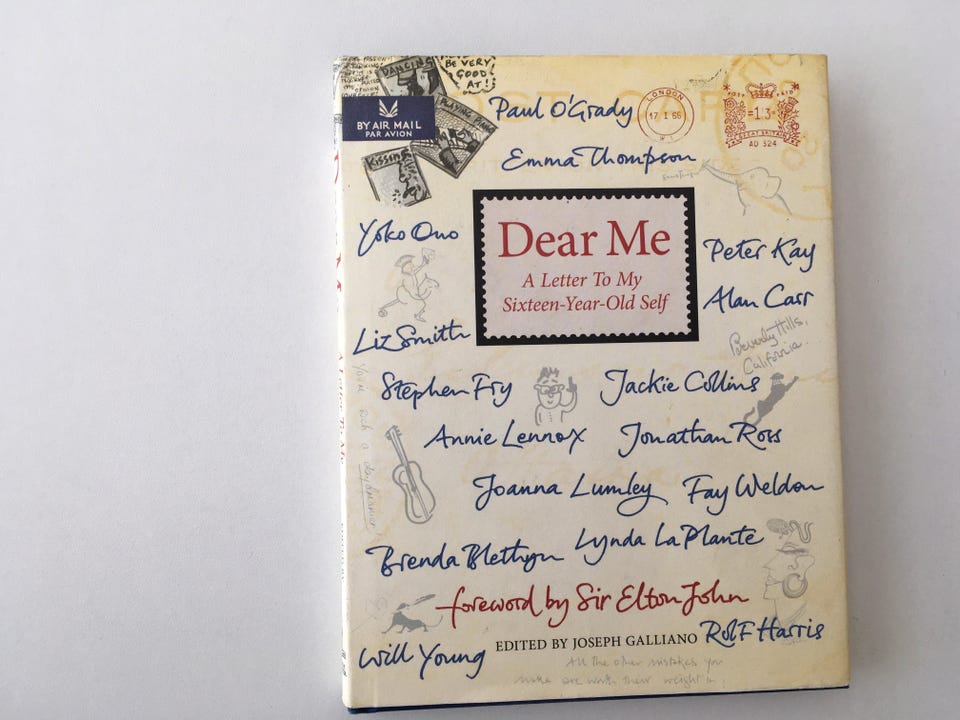 BE VERY
GOOD
AT!
DANCING
PLAYING
KISSING
BY AIR MAIL
PAR AVION
Paul O'Grady
LONDON
17 I 66
POST PAID
=1.3=
GREAT BRITAIN
AD 324
Emma Thompson
Yoko Ono
Dear Me
A Letter To My
Sixteen-Year-Old Self
Peter Kay
Alan Carr
Liz Smith
Beverly Hills,
California.
Stephen Fry
Jackie Collins
Annie Lennox
Jonathan Ross
Joanna Lumley
Fay Weldon
Brenda Blethyn
Lynda LaPlante
foreword by Sir Elton John
EDITED BY JOSEPH GALLIANO
Rolf Harris
Will Young
All the other mistakes you
make are worth their weight in